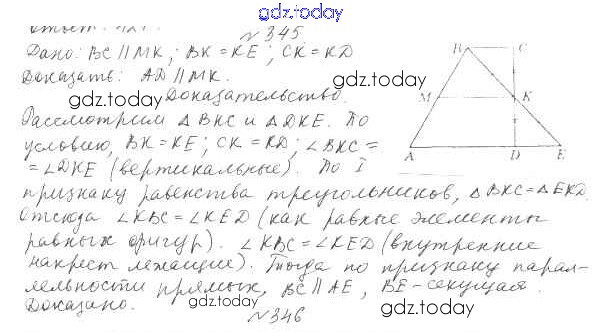 gdz.today
№345
Дано: BC || MK; BK = KE; CK = KD
Доказать: AD || MK.
gdz.today
gdz.today
Доказательство.
Рассмотрим △BKC и △DKE. По
условию, BK = KE; CK = KD; ∠BKC =
= ∠DKE (вертикальные). По I
gdz.today
gdz.today
признаку равенства треугольников, △BKC = △EKD.
Отсюда ∠KBC = ∠KED (как равные элементы
равных фигур). ∠KBC = ∠KED (внутренние
накрест лежащие). Тогда по признаку парал-
gdz.today
gdz.today
лельности прямых, BC || AE, BE - секущая.
Доказано.
gdz.today
№346
B C
M K
A D E